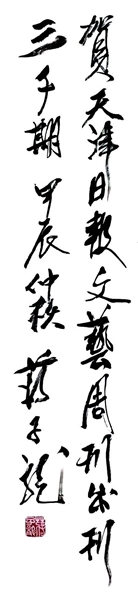 賀天津日報文藝周刊出刊
三千期 甲辰仲秋 蔣子龍